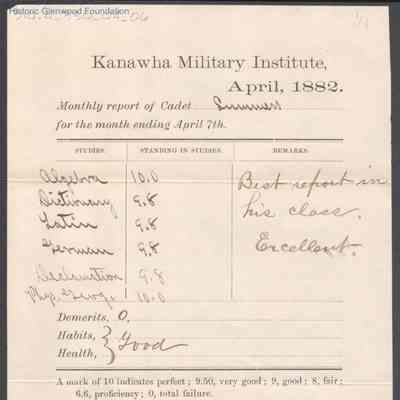 Historic Glenwood Foundation
Kanawha Military Institute,
April, 1882.
Monthly report of Cadet Summers
for the month ending April 7th.
STUDIES. STANDING IN STUDIES. REMARKS.
Algebra 10.0 Best report in
Dictionary 9.8 his class.
Latin 9.8
German 9.8 Excellent.
Declamation 9.8
Phys. Geog. 10.0
Demerits, 0,
Habits, } Good
Health,
A mark of 10 indicates perfect; 9.50, very good; 9, good; 8, fair;
6.6, proficiency; 0, total failure.